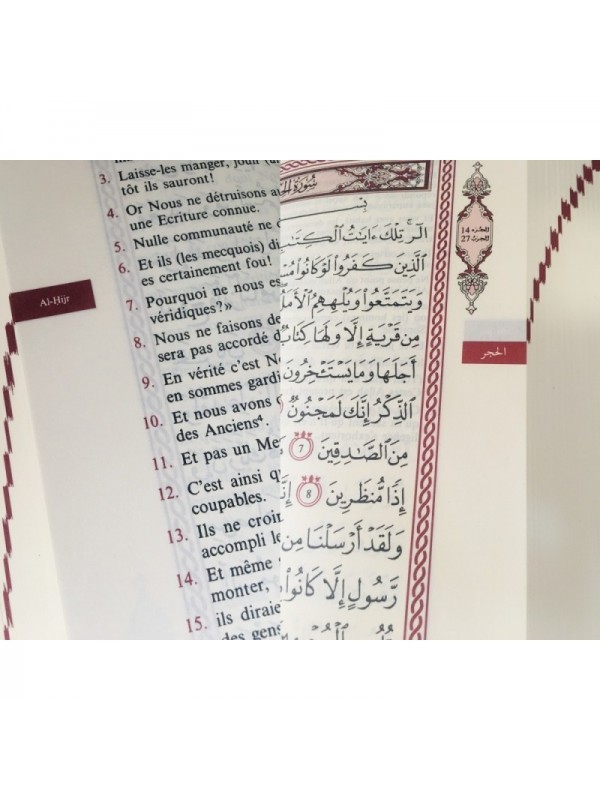 Al-Hijr
3. Laisse-les manger, jouir (
tôt ils sauront!
4. Or Nous ne détruisons
une Ecriture connue.
5. Nulle communauté ne
6. Et ils (les mecquois)
es certainement fou!
7. Pourquoi ne nous
véridiques?»
8. Nous ne faisons
sera pas accordé
9. En vérité c'est
en sommes
10. Et nous avons
des Anciens⁴.
11. Et pas un
12. C'est ainsi
coupables.
13. Ils ne
accompli
14. Et même
monter,
15. ils
des
سورة
الجزء 14
الحزب 27
الحجر
الٓر تِلْكَ ءَايَٰتُ
ٱلَّذِينَ كَفَرُوا۟ لَوْ كَانُوا۟
وَيَتَمَتَّعُوا۟ وَيُلْهِهِمُ
مِن قَرْيَةٍ إِلَّا وَلَهَا
أَجَلَهَا وَمَا يَسْتَـْٔخِرُونَ
ٱلذِّكْرُ إِنَّكَ لَمَجْنُونٌ
مِنَ ٱلصَّٰدِقِينَ 7
إِذًا مُّنظَرِينَ 8
وَلَقَدْ أَرْسَلْنَا مِن
رَّسُولٍ إِلَّا كَانُوا۟